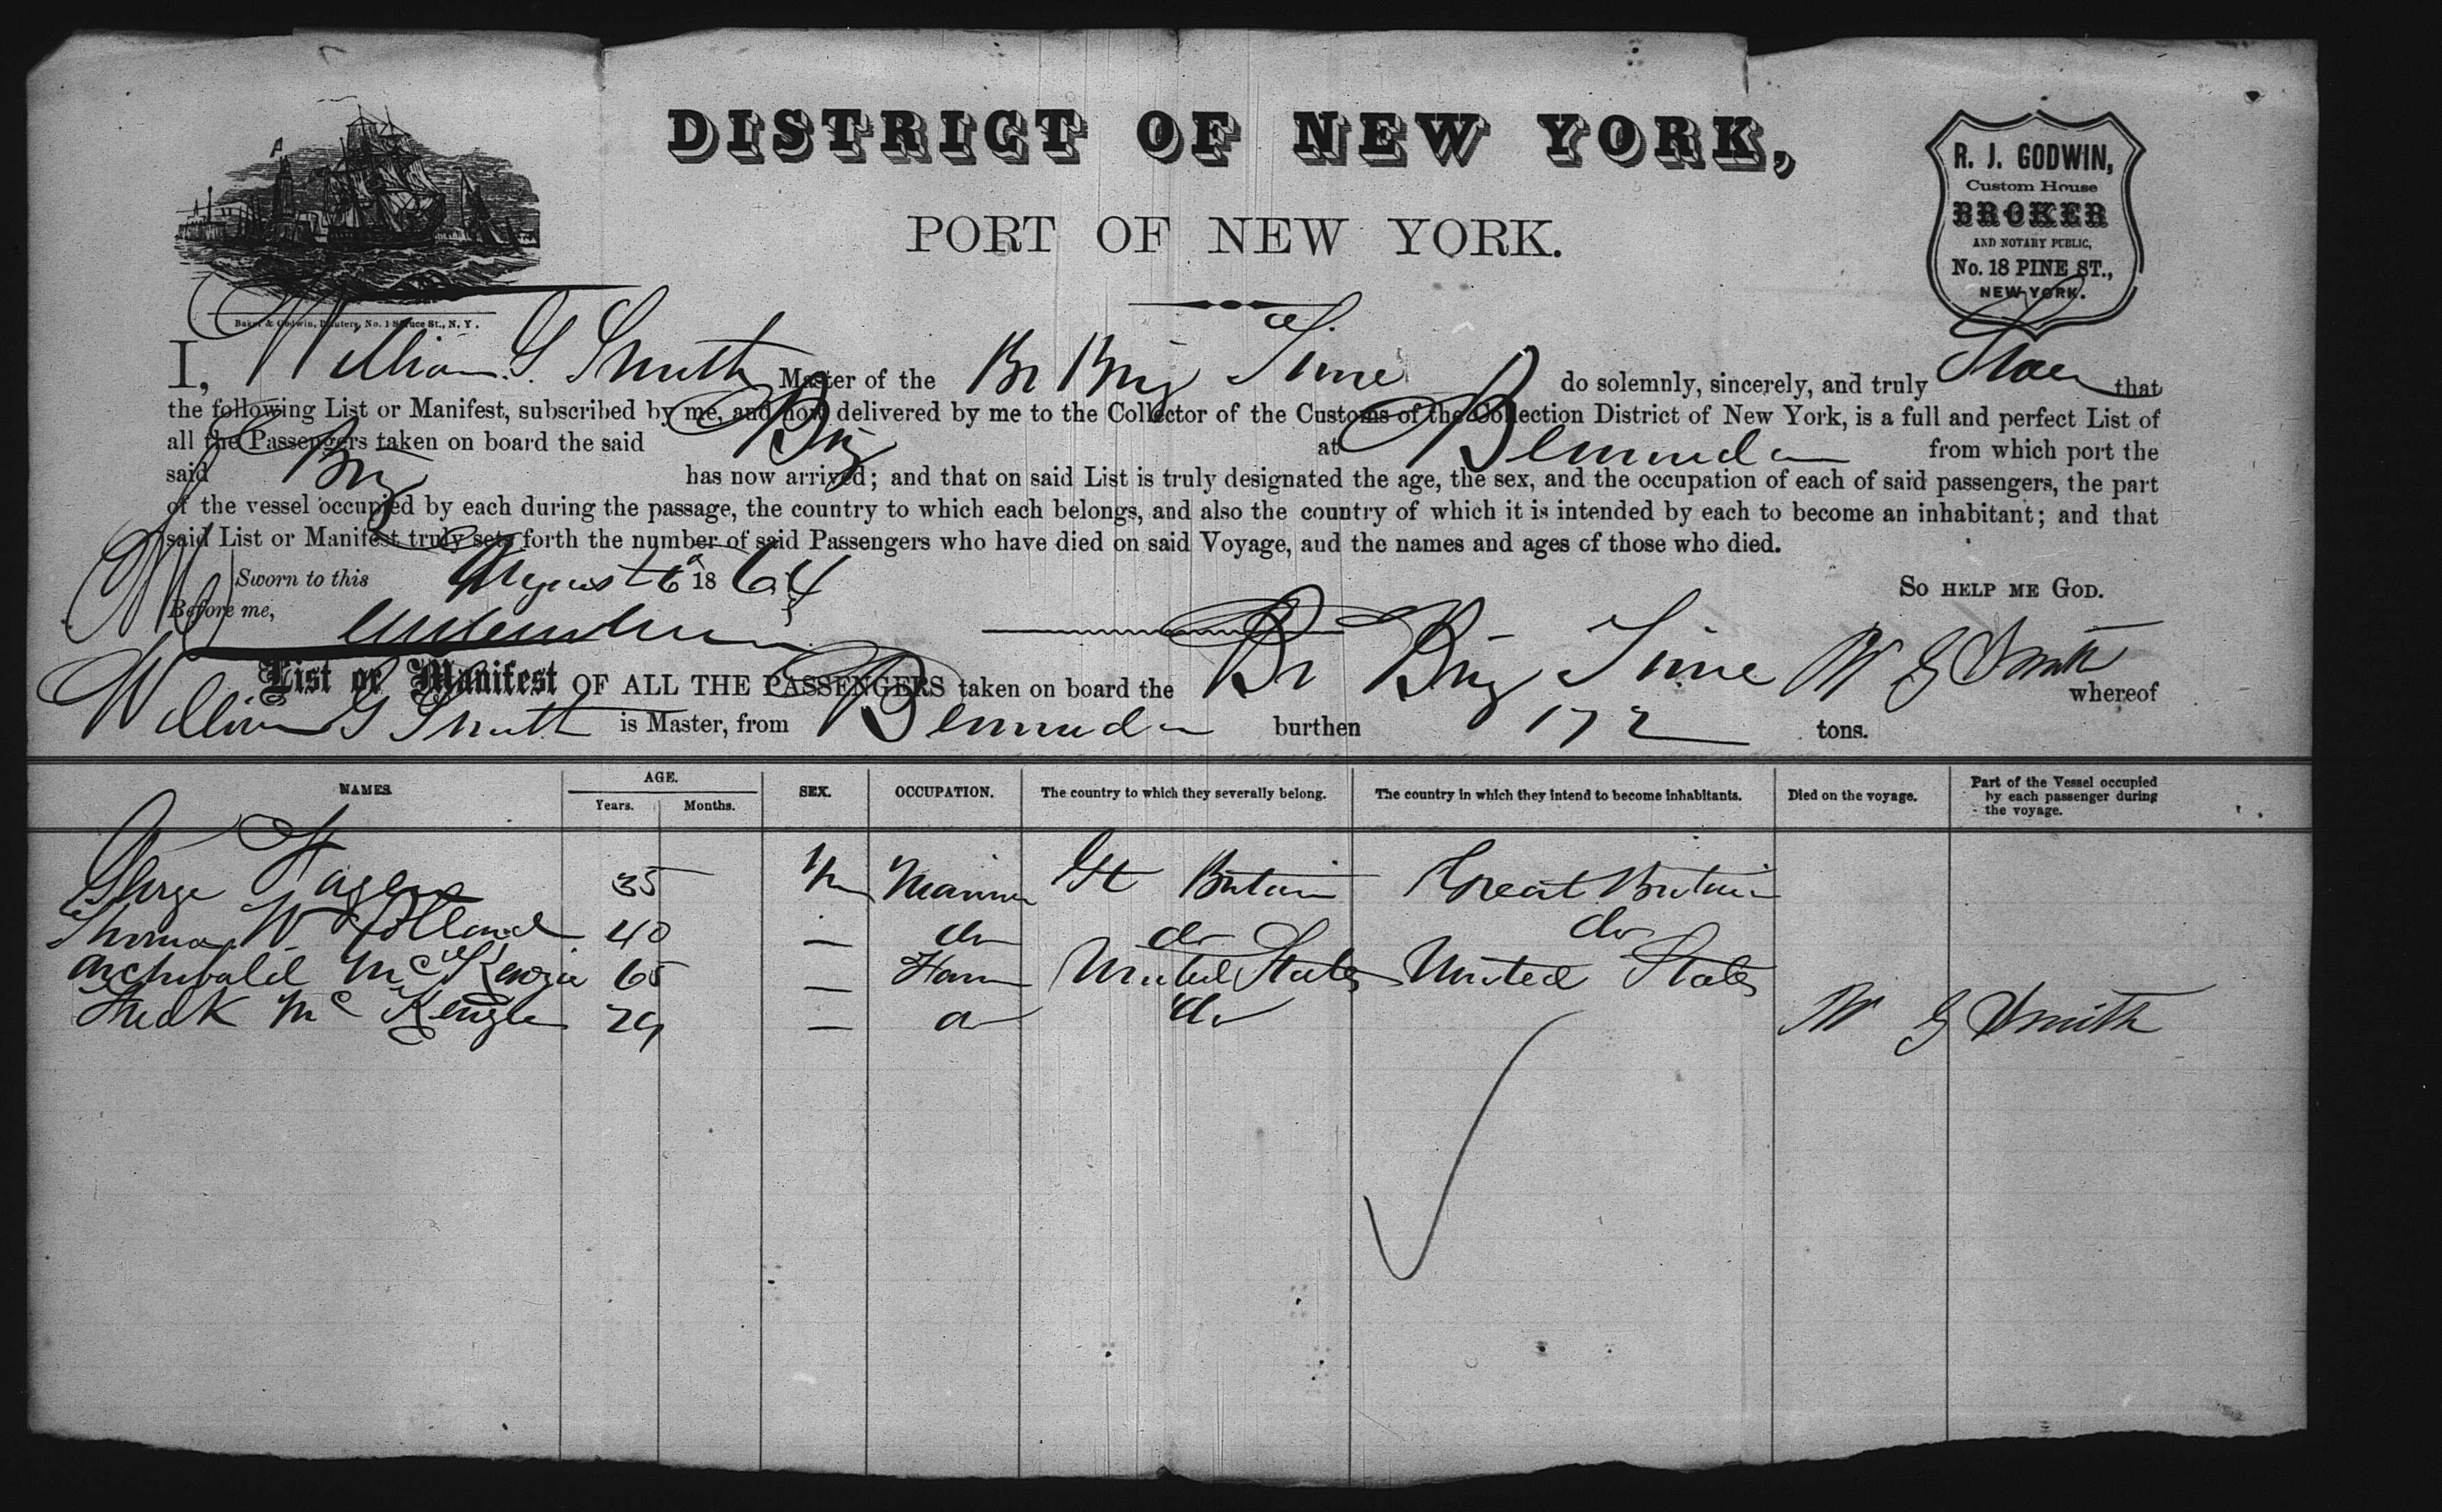 DISTRICT OF NEW YORK,
PORT OF NEW YORK.
R. J. GODWIN,
Custom House
BROKER
AND NOTARY PUBLIC,
No. 18 PINE ST.,
NEW YORK.
Baker & Godwin, Printers, No. 1 Spruce St., N. Y.
I, William G Smith Master of the Br Brig Time do solemnly, sincerely, and truly that
the following List or Manifest, subscribed by me, and now delivered by me to the Collector of the Customs of the Collection District of New York, is a full and perfect List of
all the Passengers taken on board the said Brig at Bermuda from which port the
said Brig has now arrived; and that on said List is truly designated the age, the sex, and the occupation of each of said passengers, the part
of the vessel occupied by each during the passage, the country to which each belongs, and also the country of which it is intended by each to become an inhabitant; and that
said List or Manifest truly sets forth the number of said Passengers who have died on said Voyage, and the names and ages of those who died.
Sworn to this August 6 1864 SO HELP ME GOD.
Before me,
W G Smith
List or Manifest OF ALL THE PASSENGERS taken on board the Br Brig Time whereof
William G Smith is Master, from Bermuda burthen 172 tons.
NAMES. AGE. Years. Months. SEX. OCCUPATION. The country to which they severally belong. The country in which they intend to become inhabitants. Died on the voyage. Part of the Vessel occupied by each passenger during the voyage.
George 35 m Mariner Gt Britain Great Britain
Thomas W Holland 40 — do do do
Archibald McKenzie 65 — United States United States
Fredk McKenzie 29 — do W G Smith